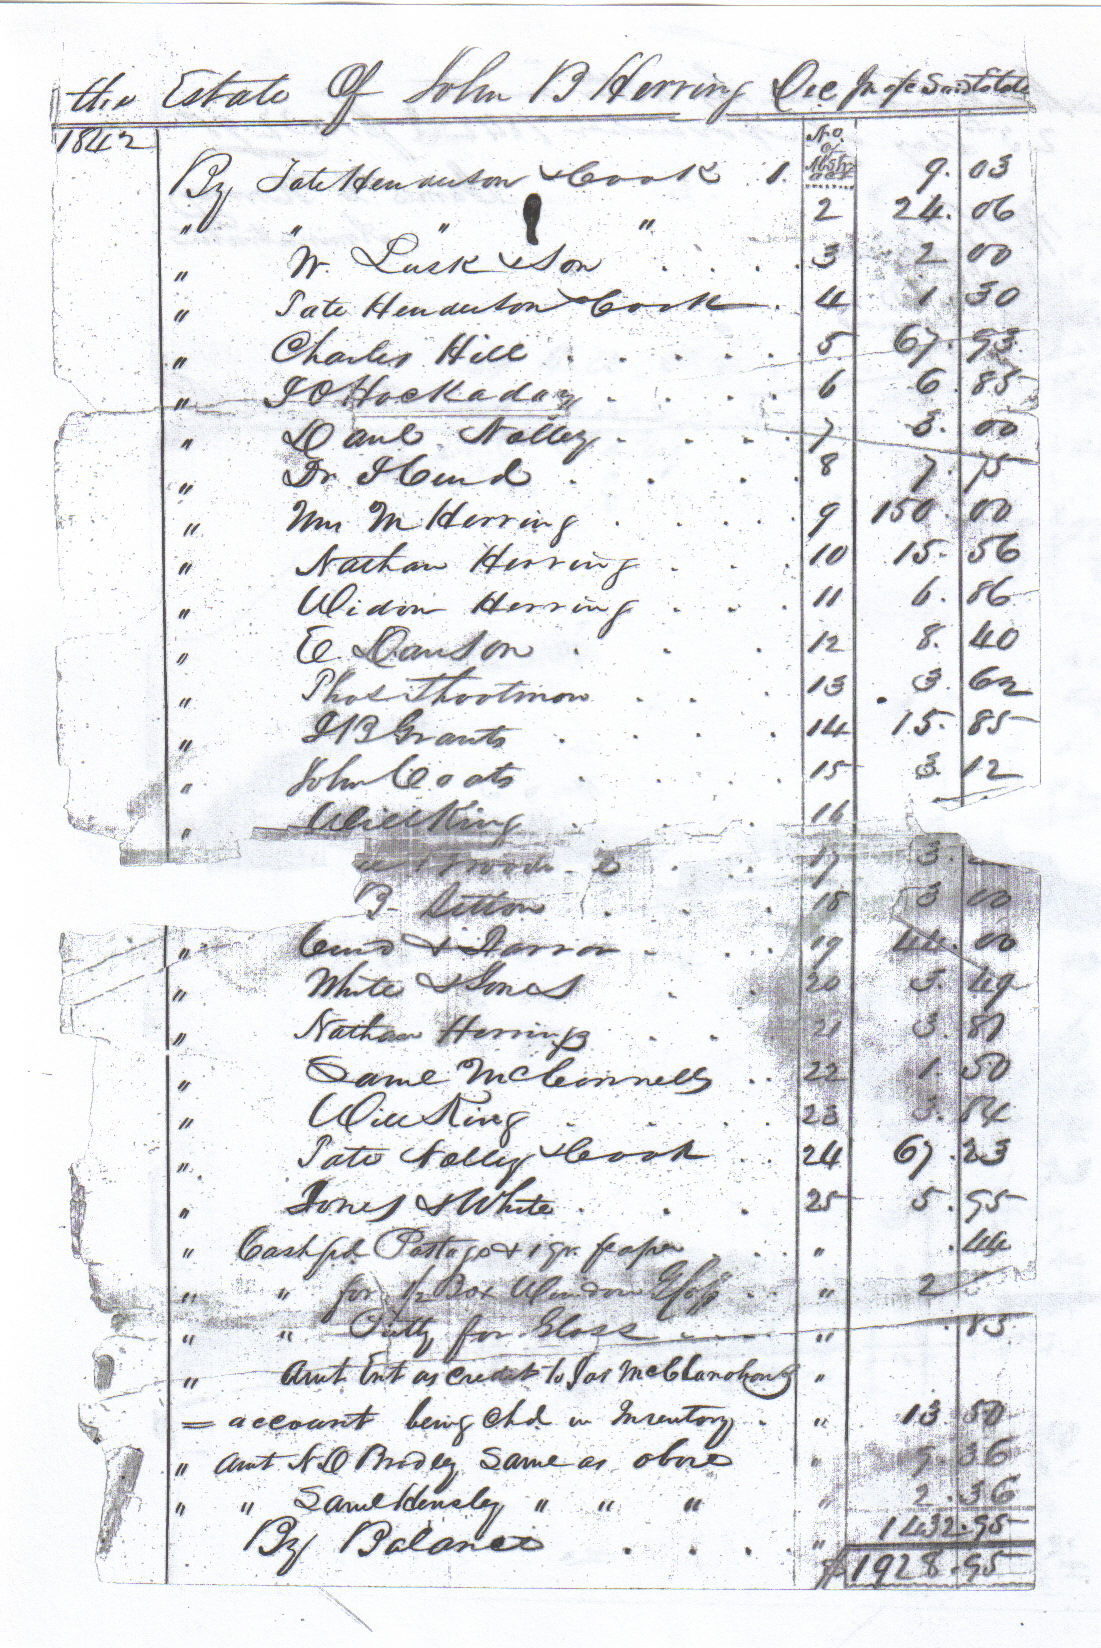 the Estate Of John B Herring Dec In a/c Said Estate
1842 No. of Abstract
By Tate Henderson & Cook 1. 9. 03
" " " " 2 24. 06
" W. Lusk & Son . . . . 3 2 00
" Tate Henderson & Cook . 4 1. 30
" Charles Hill . . . . . . 5 67. 93
" I O Hockaday . . . . 6 6. 85
" Danl. Nolley . . . . 7 3. 00
" Dr. I Curd . . . . 8 7. 75
" Wm M Herring . . . . . 9 150. 00
" Nathan Herring . . . 10 15. 56
" Widow Herring . . . 11 6. 86
" E Dawson . . . 12 8. 40
" Thos. . . . 13 3. 62
" I B Grants . . . . 14 15. 85
" John Coats . . . . 15 3. 12
" Will King . . . . 16
. . . 17 3.
B . . . . 18 3 00
" Curd & . . . 19 44. 00
" White & Jones . . 20 3. 49
" Nathan Herring . . 21 3. 87
" Saml McConnell . . 22 1. 50
" Will King . . . . 23 3.
" Tate Nolley & Cook . . 24 67. 23
" Jones & White . . . 25 5. 95
" Cash pd. Postage & 1 qr. paper . . . " . 44
" " for 1/2 Box Window Glass . . " 2
" " Putty for Glass " . 83
" Amt Ent as credit to Jas McClanahan "
= account being Chd in Inventory . " 13 50
" amt N D Bradley Same as above " 9. 36
" " Saml Hensley " " " " 2. 36
By Balance . . . . " 1432. 95
$ 1928. 95